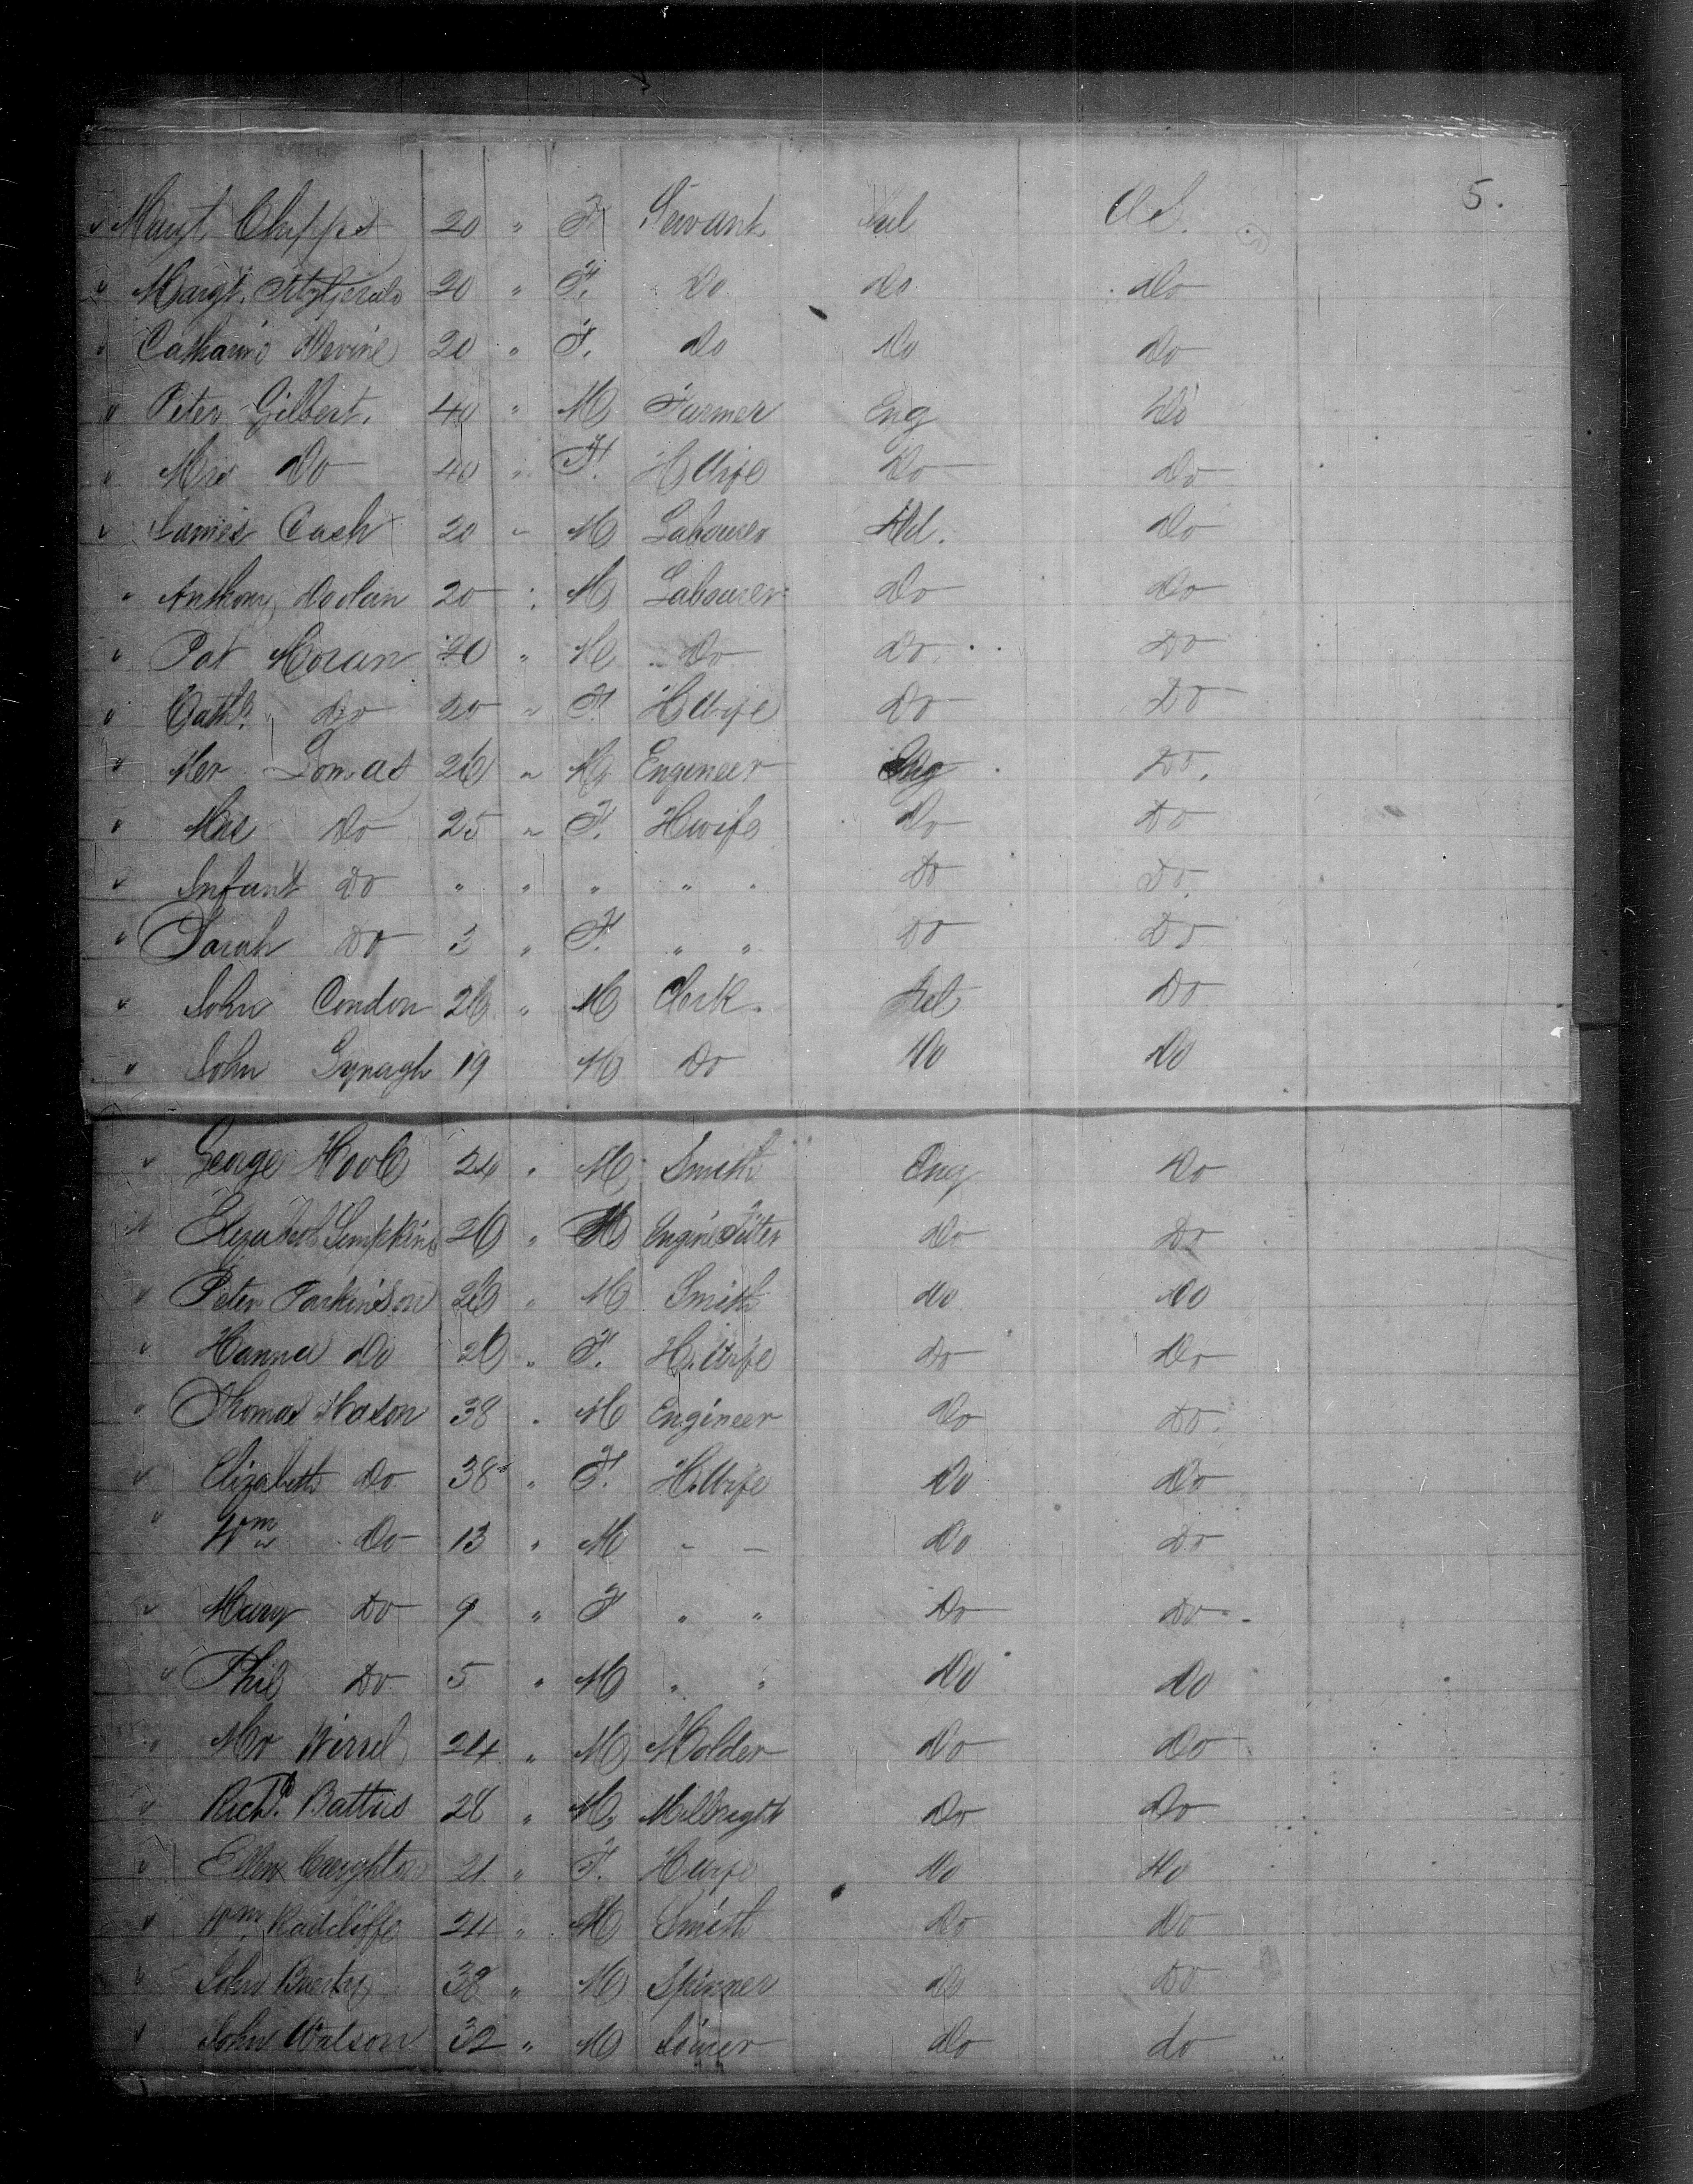 5.
Margt. Clapps 20 " F Servant Irel U.S.
Margt. Fitzgerald 20 " F. Do do Do
Catharine Devine 20 " F. do Do Do
Peter Gilbert. 40 " M Farmer Eng Do
Mrs Do 40 " F. H Wife Do Do
James Cash 20 " M Labourer Ild. Do
Anthony Dolan 20 " M Labourer Do Do
Pat Moran 20 " M Do Do Do
Cathe. do 20 " F. H Wife Do Do
Mr Lomas 26 " M Engineer Eng Do.
Mrs Do 25 " F. Hwife Do Do
Infant Do " " " " " Do Do.
Sarah Do 3 " F. " " Do Do
John Condon 26 " M Clerk. Irel Do
John Lynagh 19 M Do Do Do
George Hoole 24 " M Smith Eng Do
Elizabeth Simpkins 26 " M Engine Fitter Do Do
Peter Parkinson 26 " M Smith do Do
Hanna Do 26 " F. H. Wife Do Do
Thomas Mason 38 " M Engineer Do Do.
Elizabeth Do 38 " F. H. Wife Do Do
Wm Do 13 " M - - Do Do
Mary Do 9 " F " " Do Do
Phil Do 5 " M " " Do Do
Mr Wirrel 24 " M Molder Do Do
Richd. Battus 28 " M Milbright Do Do
Ellen Creighton 21 " F. H wife Do Do
Wm. Radcliffe 24 " M Smith Do Do
John 38 " M Spinner Do Do
John Watson 32 " M Do do